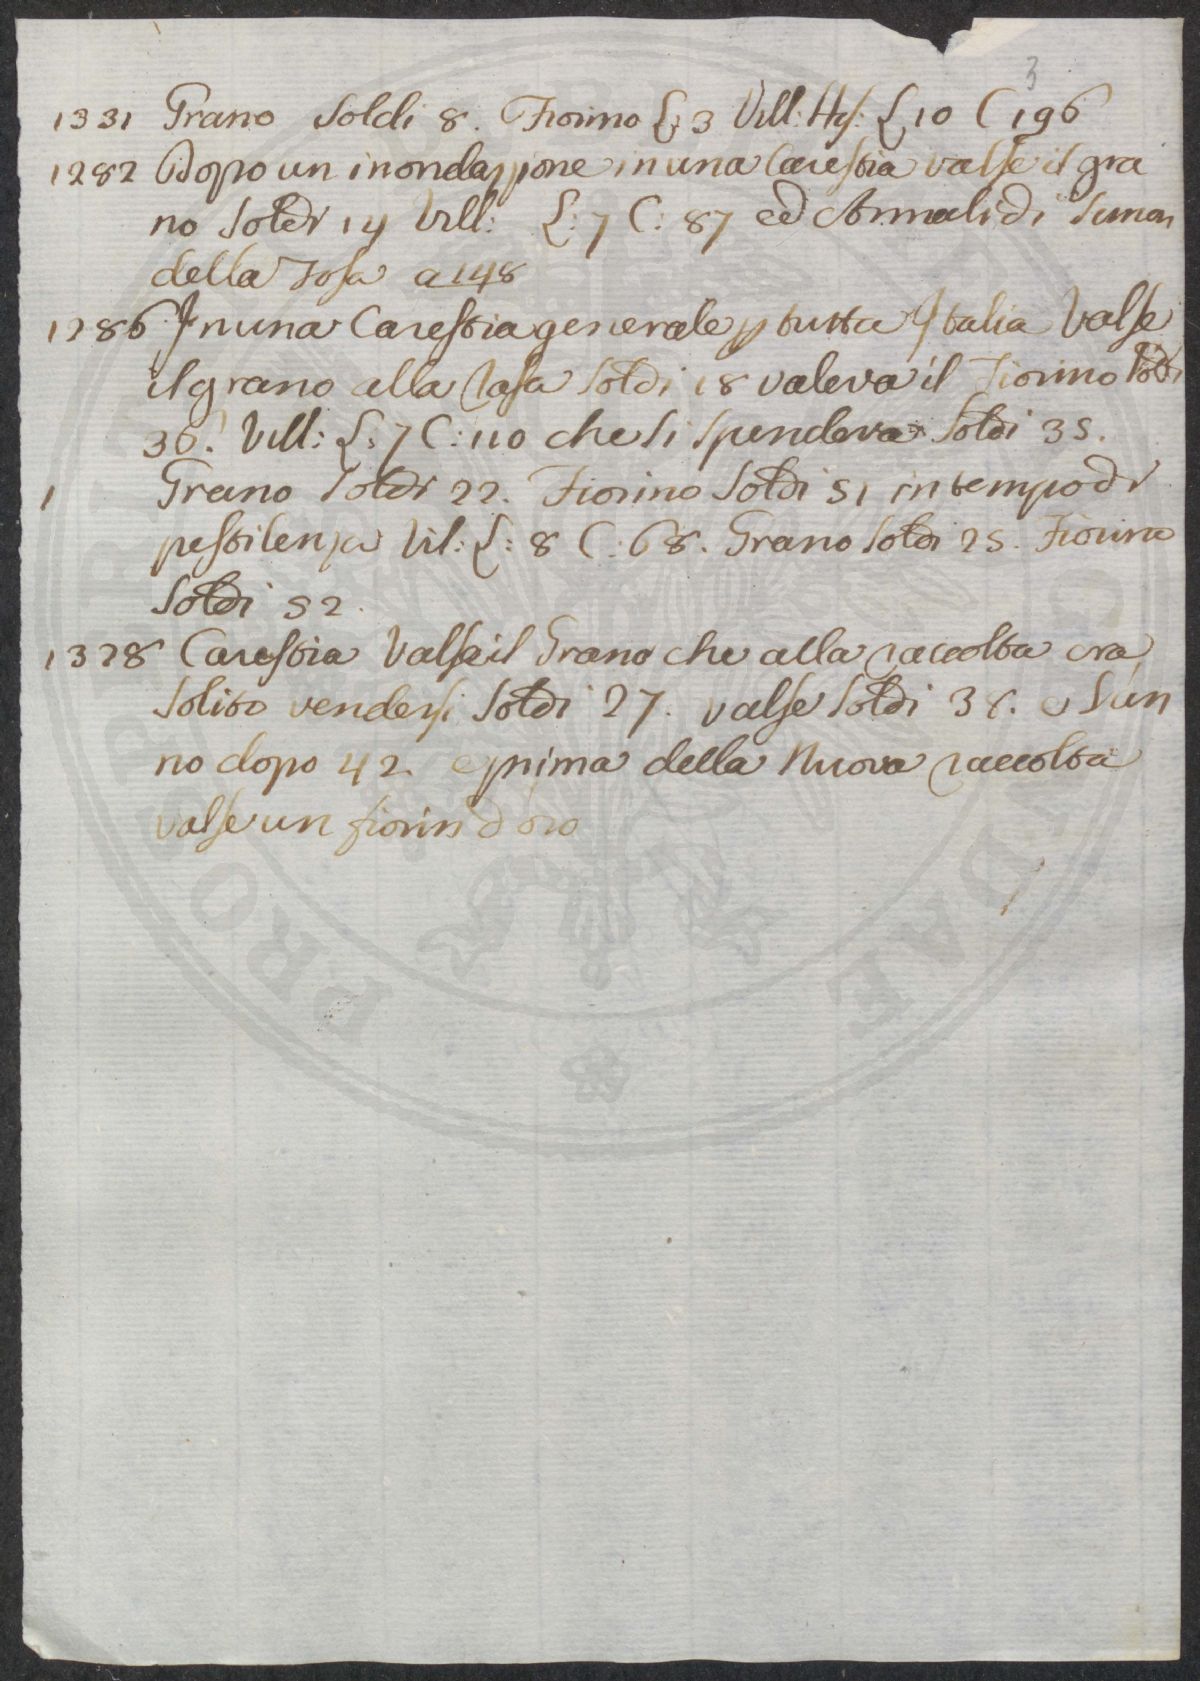 3
1331 Grano Soldi 8. Fiorino L: 3 Vill: His: L 10 C 196
1282 Dopo un inondazzione in una Carestia valse il gra
no Soldi 14 Vill: L: 7 C: 87 ed Annali di Simon
della Tosa a 148
1286 In una Carestia generale p tutta Italia Valse
il grano alla Rasa Soldi 18 valeva il Fiorino Soldi
36. Vill: L: 7 C: 110 che si spendeva Soldi 35.
1 Grano Soldi 22. Fiorino Soldi 51 in tempo di
pestilenza Vil: L: 8 C: 68. Grano Soldi 25. Fiorino
Soldi 52.
1328 Carestia Valse il Grano che alla raccolta era
solito vendersi Soldi 27. valse Soldi 38. e l'an
no dopo 42 e prima della Nuova raccolta
valse un fiorin d oro